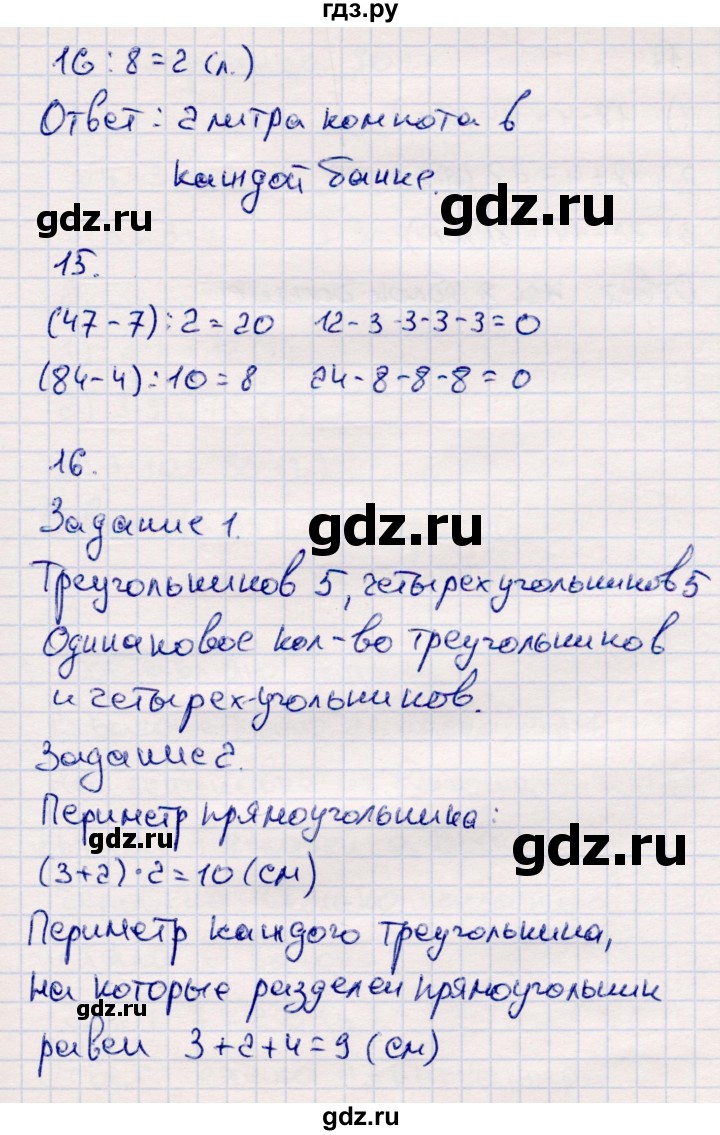 гдз.ру
16 : 8 = 2 (л.)
Ответ: 2 литра компота в
каждой банке.
gdz.ru
gdz.ru
15.
(47 - 7) : 2 = 20 12 - 3 - 3 - 3 - 3 = 0
(84 - 4) : 10 = 8 24 - 8 - 8 - 8 = 0
16.
Задание 1.
gdz.ru
Треугольников 5, четырехугольников 5
Одинаковое кол-во треугольников
и четырех-угольников.
Задание 2.
Периметр прямоугольника:
gdz.ru
gdz.ru
(3 + 2) · 2 = 10 (см)
Периметр каждого треугольника,
на которые разделен прямоугольник
gdz.ru
равен 3 + 2 + 4 = 9 (см)
gdz.ru